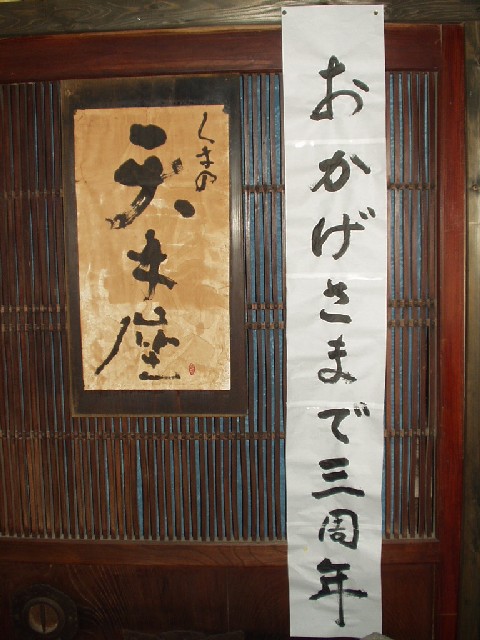 おかげさまで三周年
くまの
天木座